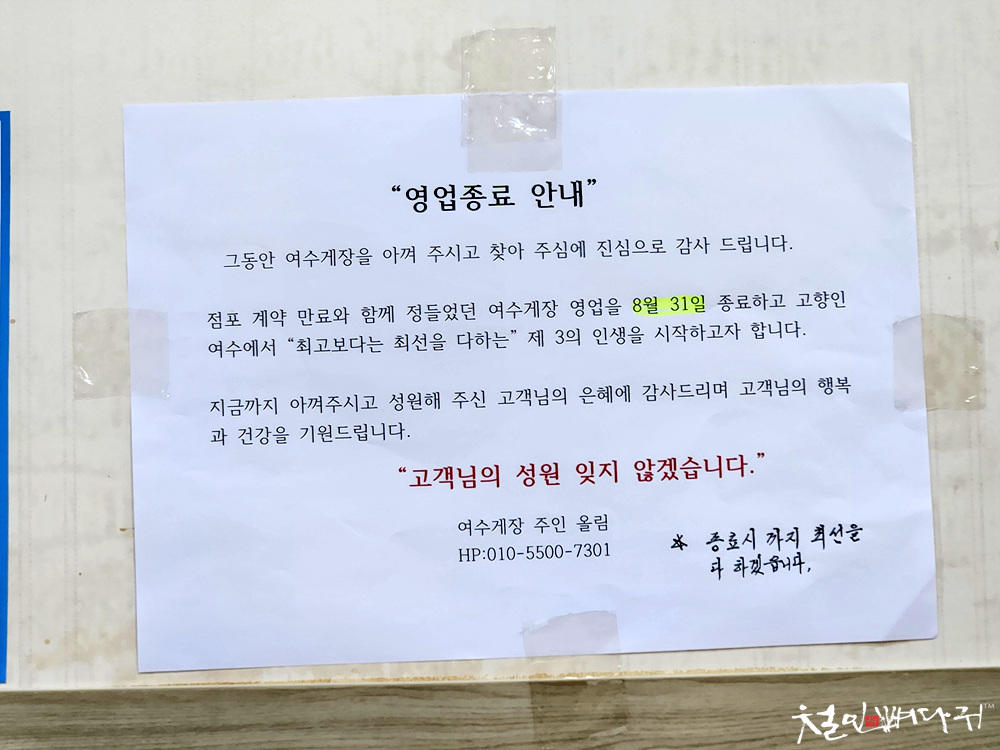 “영업종료 안내”
그동안 여수게장을 아껴 주시고 찾아 주심에 진심으로 감사 드립니다.
점포 계약 만료와 함께 정들었던 여수게장 영업을 8월 31일 종료하고 고향인
여수에서 “최고보다는 최선을 다하는” 제 3의 인생을 시작하고자 합니다.
지금까지 아껴주시고 성원해 주신 고객님의 은혜에 감사드리며 고객님의 행복
과 건강을 기원드립니다.
“고객님의 성원 잊지 않겠습니다.”
여수게장 주인 올림
HP:010-5500-7301
※ 종료시 까지 최선을
다 하겠습니다.
철인뼈다귀™